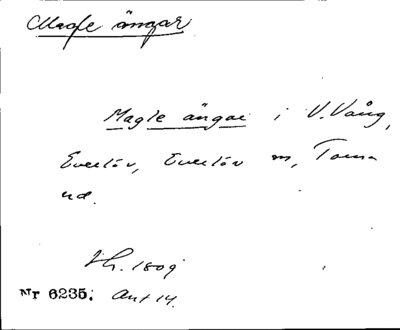 Magle ängar
Magle ängar i V. Vång,
Everlöv, Everlöv m, Torna
hd.
Sk. 1809
Nr 6235; Akt 14.